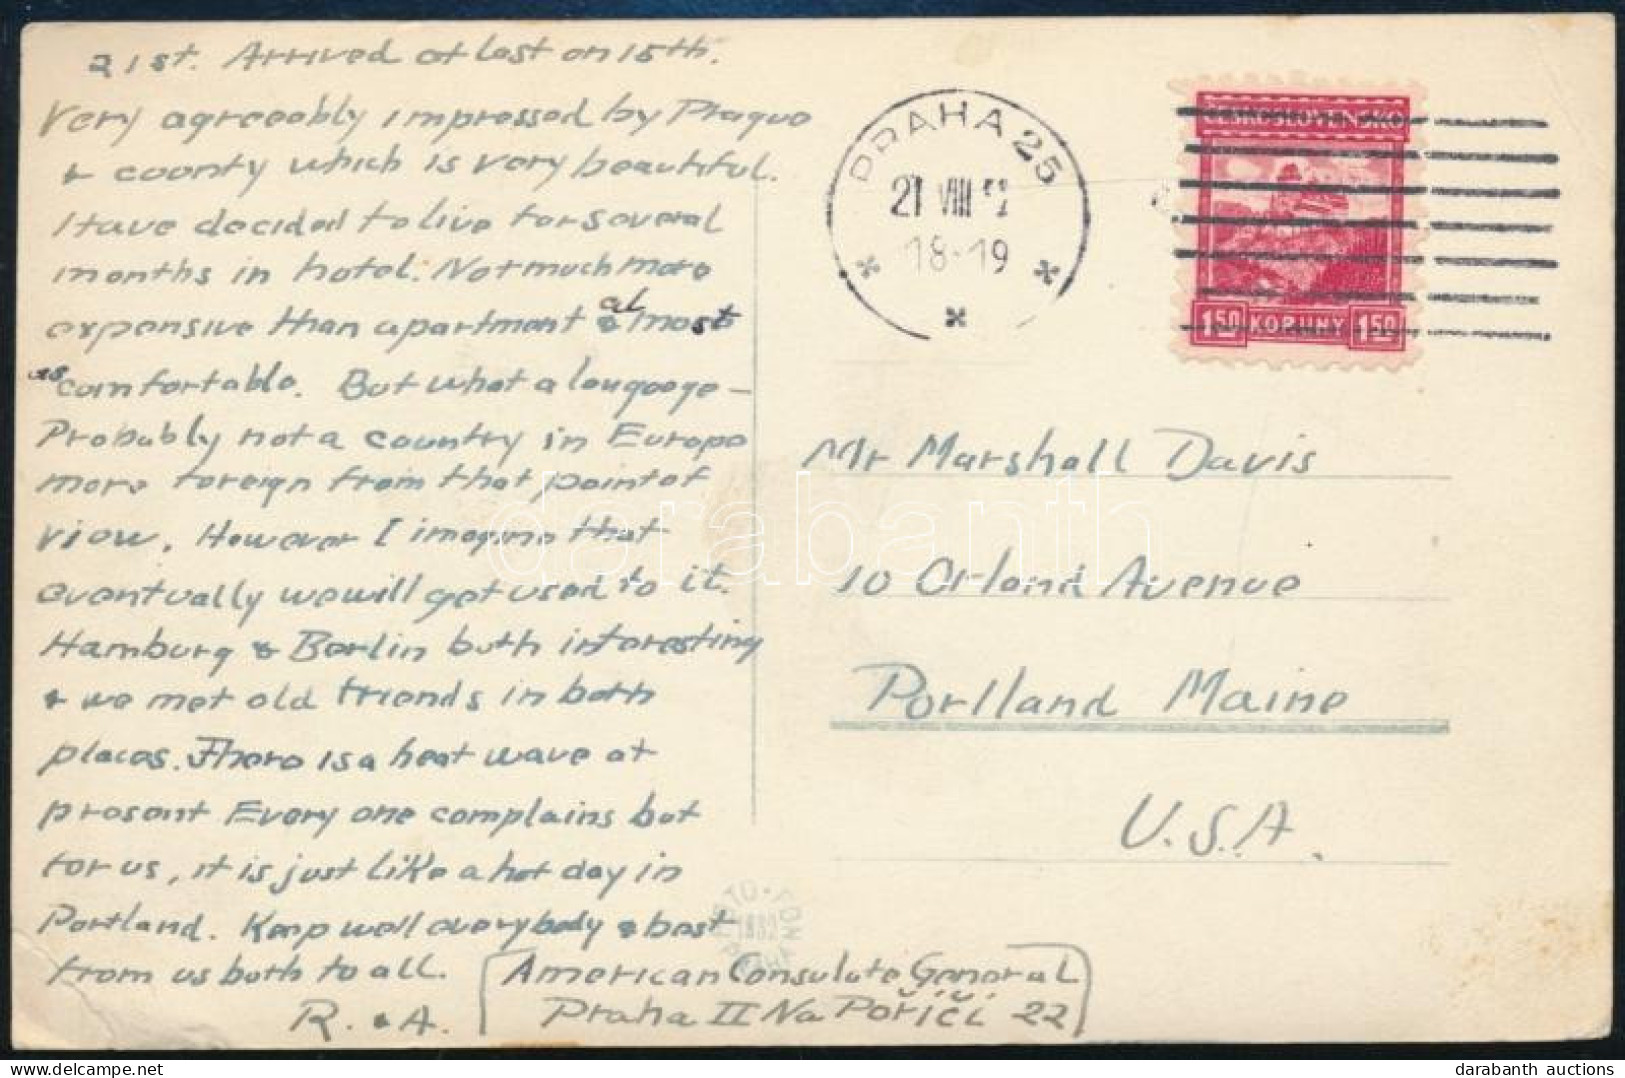 21st. Arrived at last on 15th.
Very agreeably impressed by Prague
& county which is very beautiful.
I have decided to live for several
months in hotel. Not much more
expensive than apartment & almost
as comfortable. But what a language —
Probably not a country in Europe
more foreign from that point of
view. However I imagine that
eventually we will get used to it.
Hamburg & Berlin both interesting
& we met old friends in both
places. There is a heat wave at
present Every one complains but
for us, it is just like a hot day in
Portland. Keep well everybody & best
from us both to all.
R. & A.
American Consulate General
Praha II Na Poříčí 22
PRAHA 25
21 VIII
18-19
ČESKOSLOVENSKO
1.50 KORUNY 1.50
Mr Marshall Davis
10 Orland Avenue
Portland Maine
U.S.A.
FOTO · FON
1932
darabanth
darabanth auctions